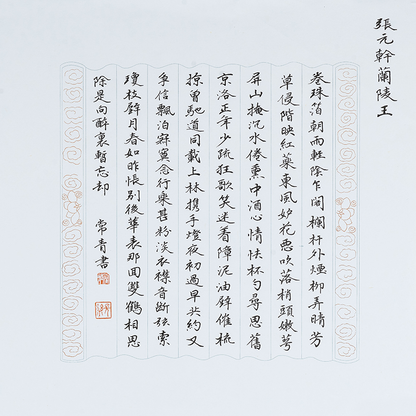 張元幹蘭陵王
卷珠箔朝雨輕陰乍閣欄杆外煙柳弄晴芳
草侵階映紅藥東風妒花惡吹落梢頭嫩萼
屏山掩沉水倦熏中酒心情怯杯勺尋思舊
京洛正年少疏狂歌笑迷着障泥油壁催梳
掠曾馳道同載上林携手燈夜初過早共約又
爭信飄泊寂寞念行樂甚粉淡衣襟音斷弦索
瓊枝璧月春如昨悵別後華表那回雙鶴相思
除是向醉裏暫忘却 常青書